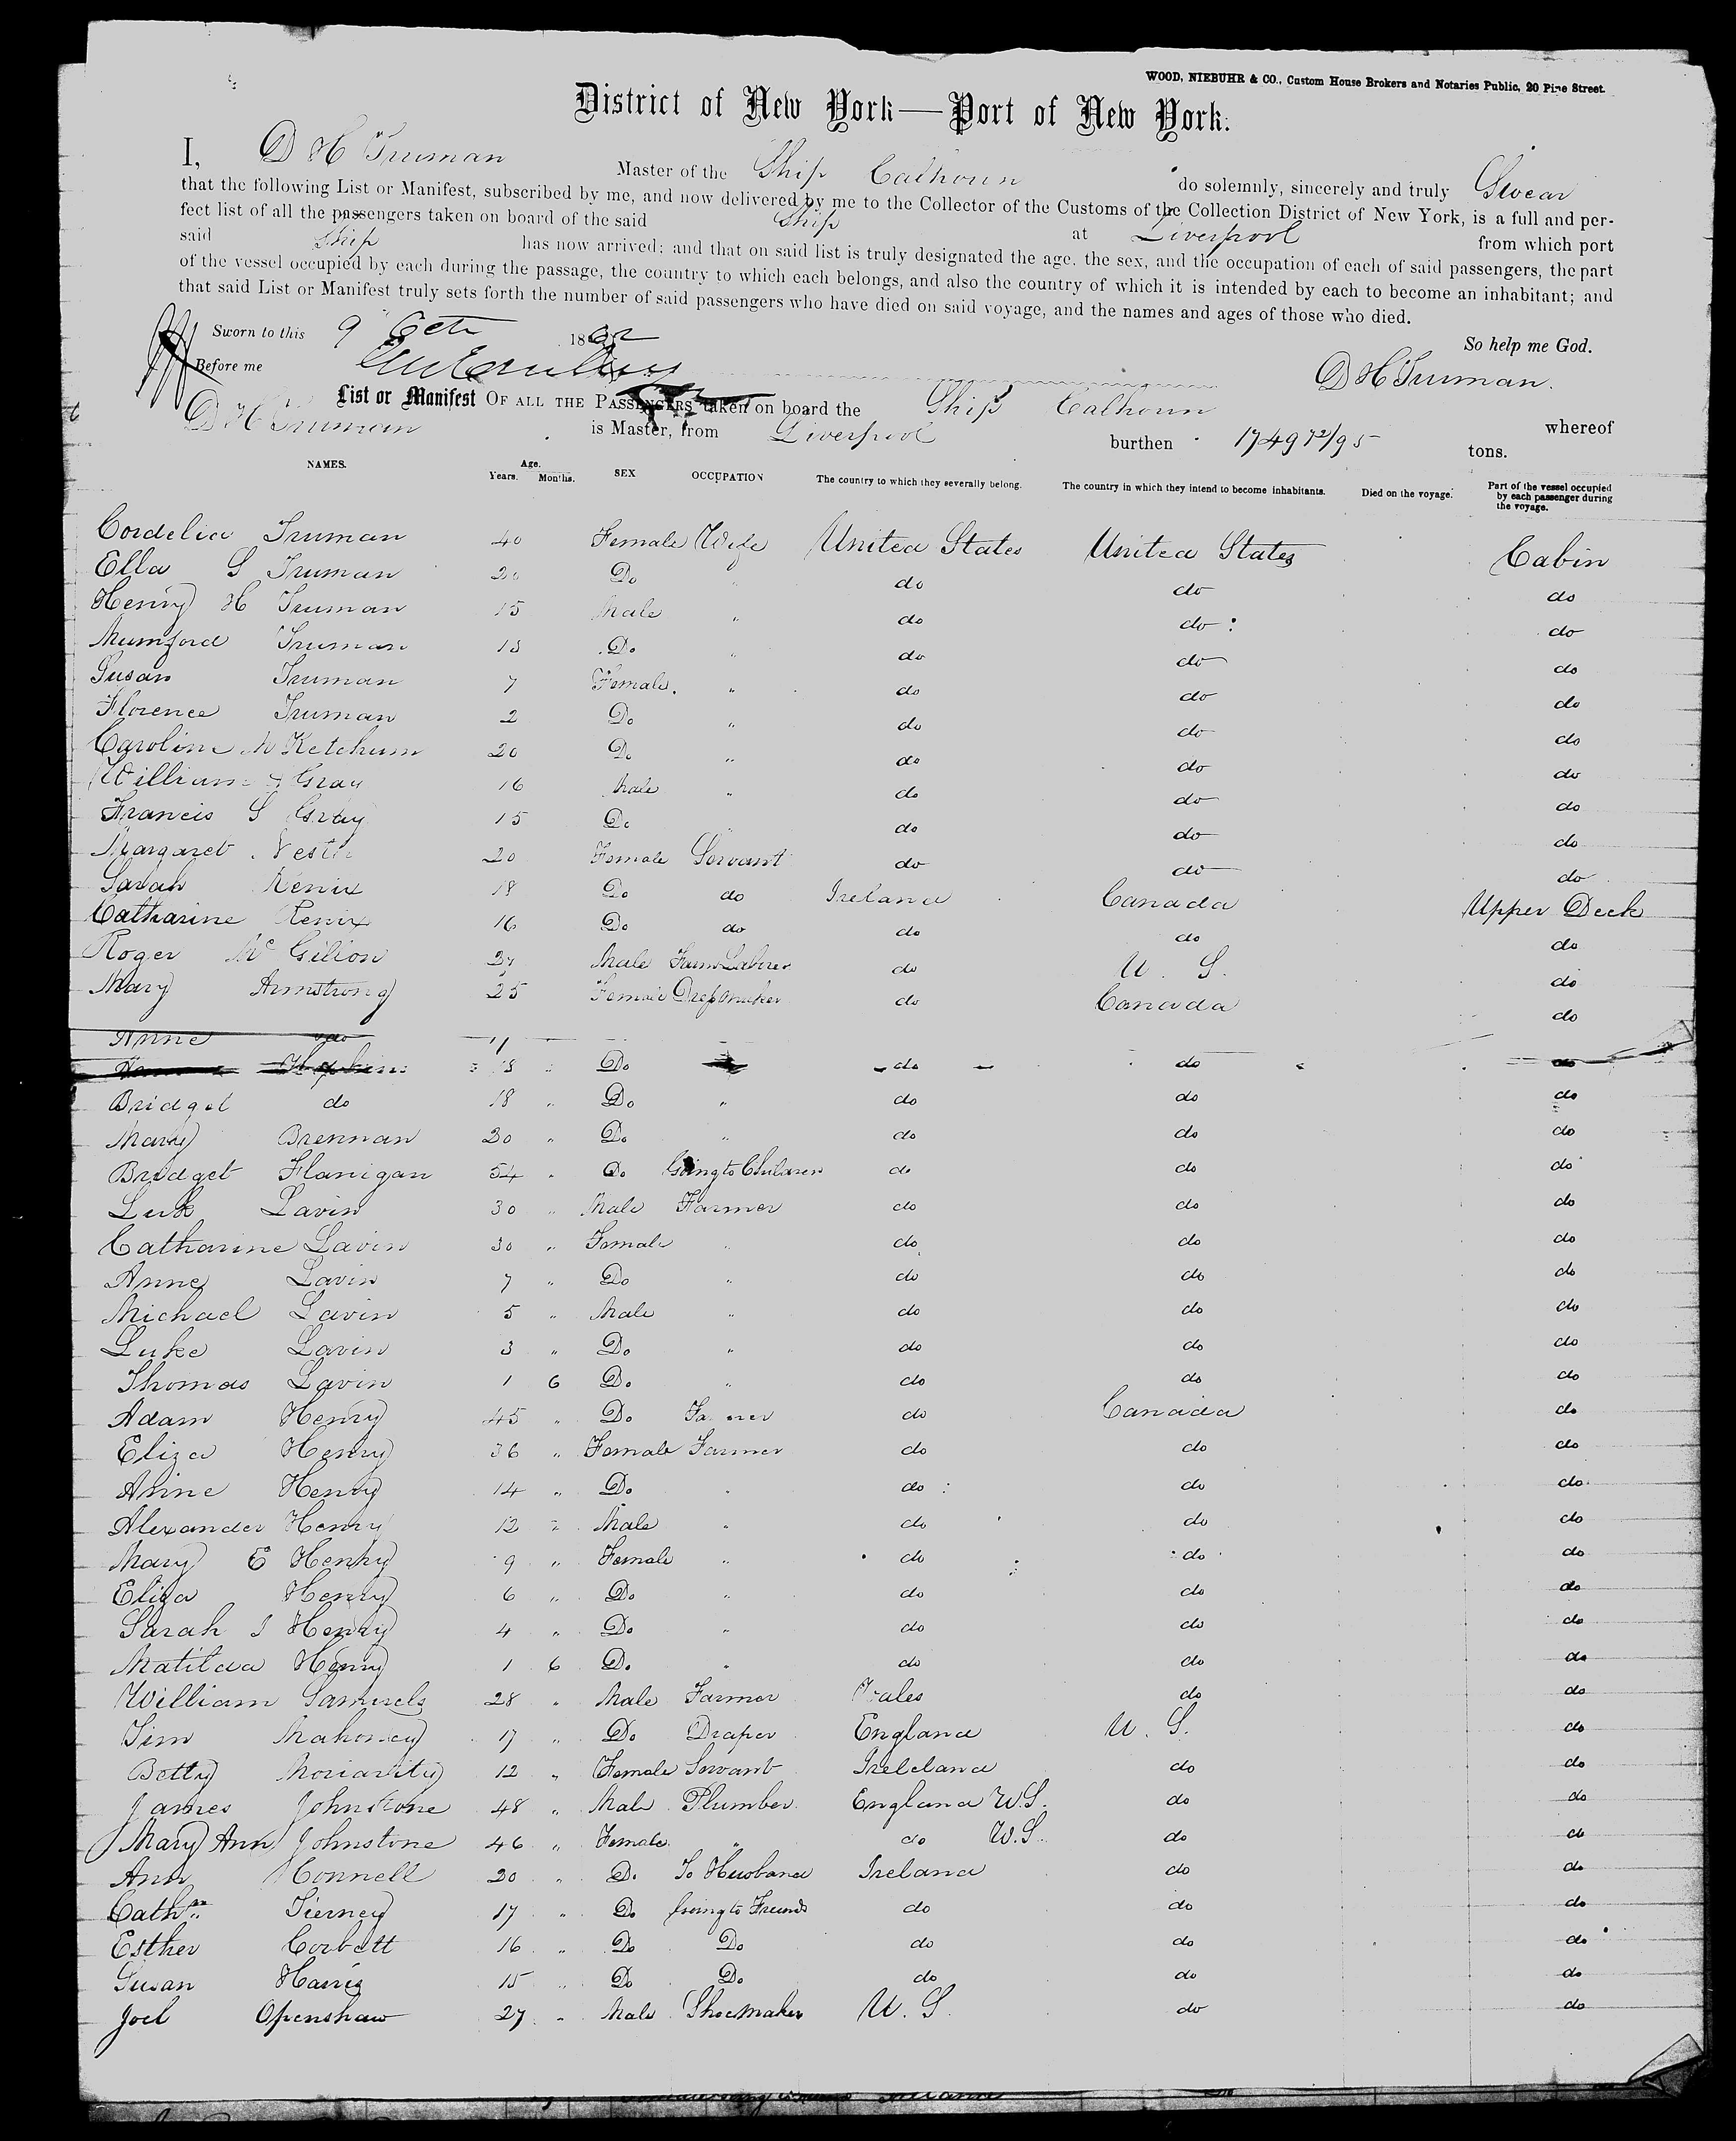 WOOD, NIEBUHR & CO., Custom House Brokers and Notaries Public, 20 Pine Street.
District of New York—Port of New York.
I, D H Truman Master of the Ship Calhoun do solemnly, sincerely and truly Swear
that the following List or Manifest, subscribed by me, and now delivered by me to the Collector of the Customs of the Collection District of New York, is a full and per-
fect list of all the passengers taken on board of the said Ship at Liverpool from which port
said Ship has now arrived; and that on said list is truly designated the age, the sex, and the occupation of each of said passengers, the part
of the vessel occupied by each during the passage, the country to which each belongs, and also the country of which it is intended by each to become an inhabitant; and
that said List or Manifest truly sets forth the number of said passengers who have died on said voyage, and the names and ages of those who died.
Sworn to this 9 Oct 1862 So help me God.
Before me D H Truman.
List or Manifest OF ALL THE PASSENGERS taken on board the Ship Calhoun whereof
D H Truman is Master, from Liverpool burthen 1749 72/95 tons.
NAMES. Age. Years. Months. SEX OCCUPATION The country to which they severally belong. The country in which they intend to become inhabitants. Died on the voyage. Part of the vessel occupied by each passenger during the voyage.
Cordelia Truman 40 Female Wife United States United States Cabin
Ella S Truman 20 Do " do do do
Henry H Truman 15 Male " do do do
Mumford Truman 13 Do " do do do
Susan Truman 7 Female " do do do
Florence Truman 2 Do " do do do
Caroline M Ketchum 20 Do " do do do
William Gray 16 Male " do do do
Francis S Gray 15 Do do do do
Margaret 20 Female Servant do do do
Sarah Renix 18 Do do Ireland Canada Upper Deck
Catharine Renix 16 Do do do do do
Roger Mc Gilion Male Farm Laborer do U. S. do
Mary Armstrong 25 Female Dressmaker do Canada do
Anne do 11
Hopkins 18 " Do do do do
Bridget do 18 " Do " do do do
Mary Brennan 20 " Do " do do do
Bridget Flanigan 54 " Do Going to Children do do do
Luk Lavin 30 " Male Farmer do do do
Catharine Lavin 30 " Female " do do do
Anne Lavin 7 " Do " do do do
Michael Lavin 5 " Male " do do do
Luke Lavin 3 " Do " do do do
Thomas Lavin 1 6 Do " do do do
Adam Henry 45 " Do Farmer do Canada do
Eliza Henry 36 " Female Farmer do do do
Anne Henry 14 " Do " do do do
Alexander Henry 12 " Male " do do do
Mary E Henry 9 " Female " do do do
Eliza Henry 6 " Do " do do do
Sarah J Henry 4 " Do " do do do
Matilda Henry 1 6 Do " do do do
William Samuels 28 " Male Farmer Wales do do
Tim Mahoney 17 " Do Draper England U. S. do
Betty Moriarity 12 " Female Servant Ireland do do
James Johnstone 48 " Male Plumber England W.S. do do
Mary Ann Johnstone 46 " Female " do W.S. do do
Ann Connell 20 " Do To Husband Ireland do do
Cathne Tierney 17 " Do Going to Friends do do do
Esther Corbett 16 " Do Do do do do
Susan Harris 15 " Do Do do do do
Joel Openshaw 27 " Male Shoemaker U. S. do do